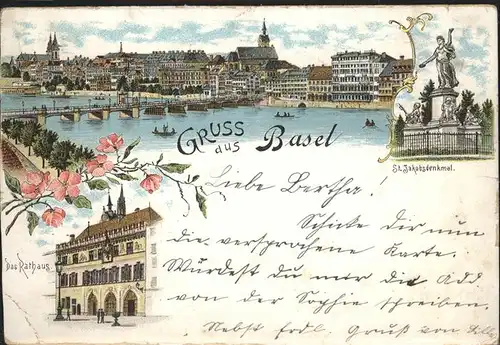 GRUSS
aus Basel
St. Jakobsdenkmal.
Das Rathaus.
Liebe Bertha!
Schicke Dir nun
die versprochene Karte.
Würdest du mir die Add
von der Sophie schreiben.
Nebst frdl. Gruß von